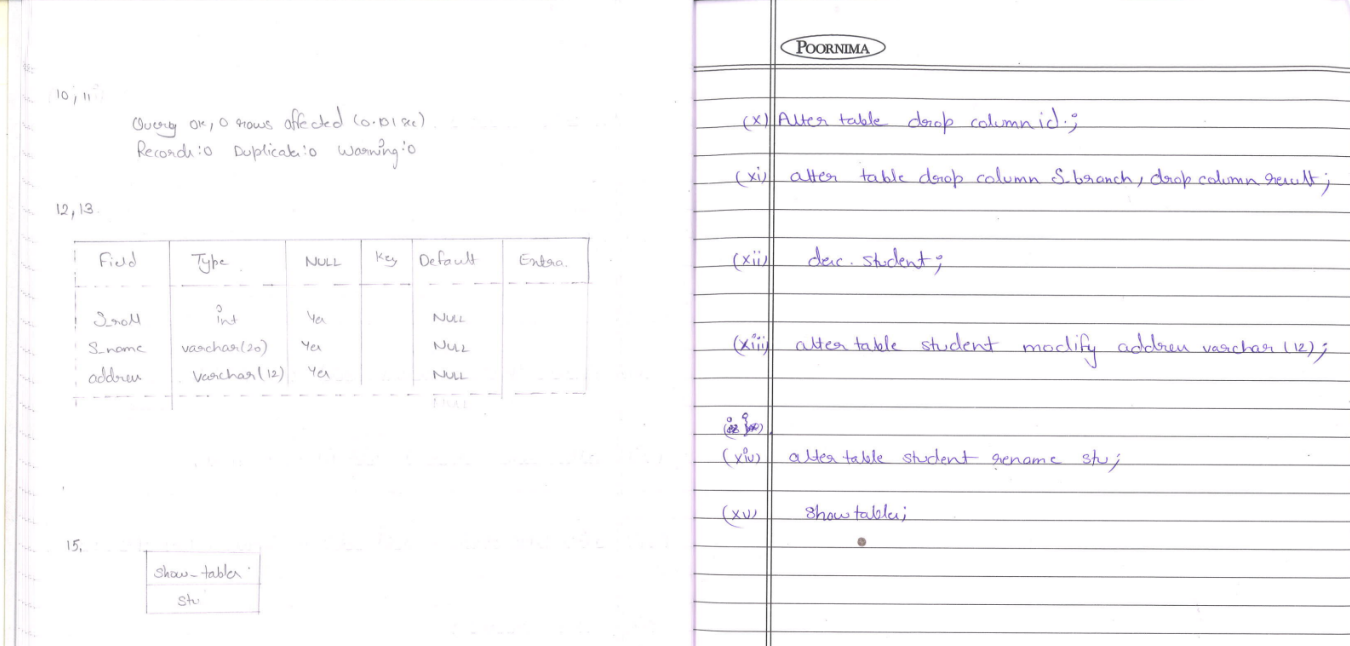 10, 11
Query OK, 0 rows affected (0.01 sec)
Records:0 Duplicate:0 Warning:0
12, 13.
Field Type NULL Key Default Extra
S_roll int Yes NULL
S_name varchar(20) Yes NULL
address varchar(12) Yes NULL
15.
show-tables
stu
POORNIMA
(x) Alter table drop column id.;
(xi) alter table drop column S_branch, drop column result;
(xii) desc. student;
(xiii) alter table student modify address varchar (12);
(xiv) alter table student rename stu;
(xv) show tables;